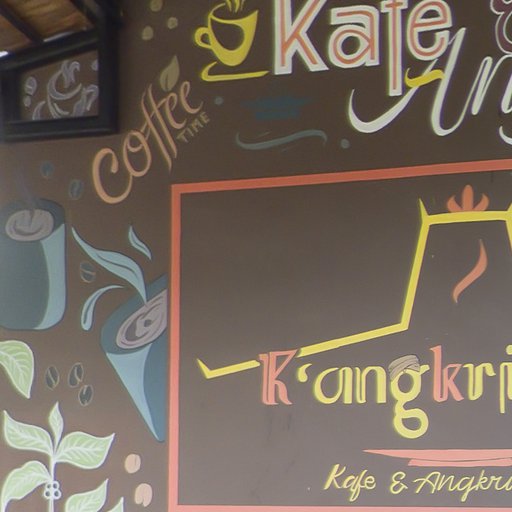 Kafe
An
Coffee
TIME
K'angkri
Kafe & Angkri